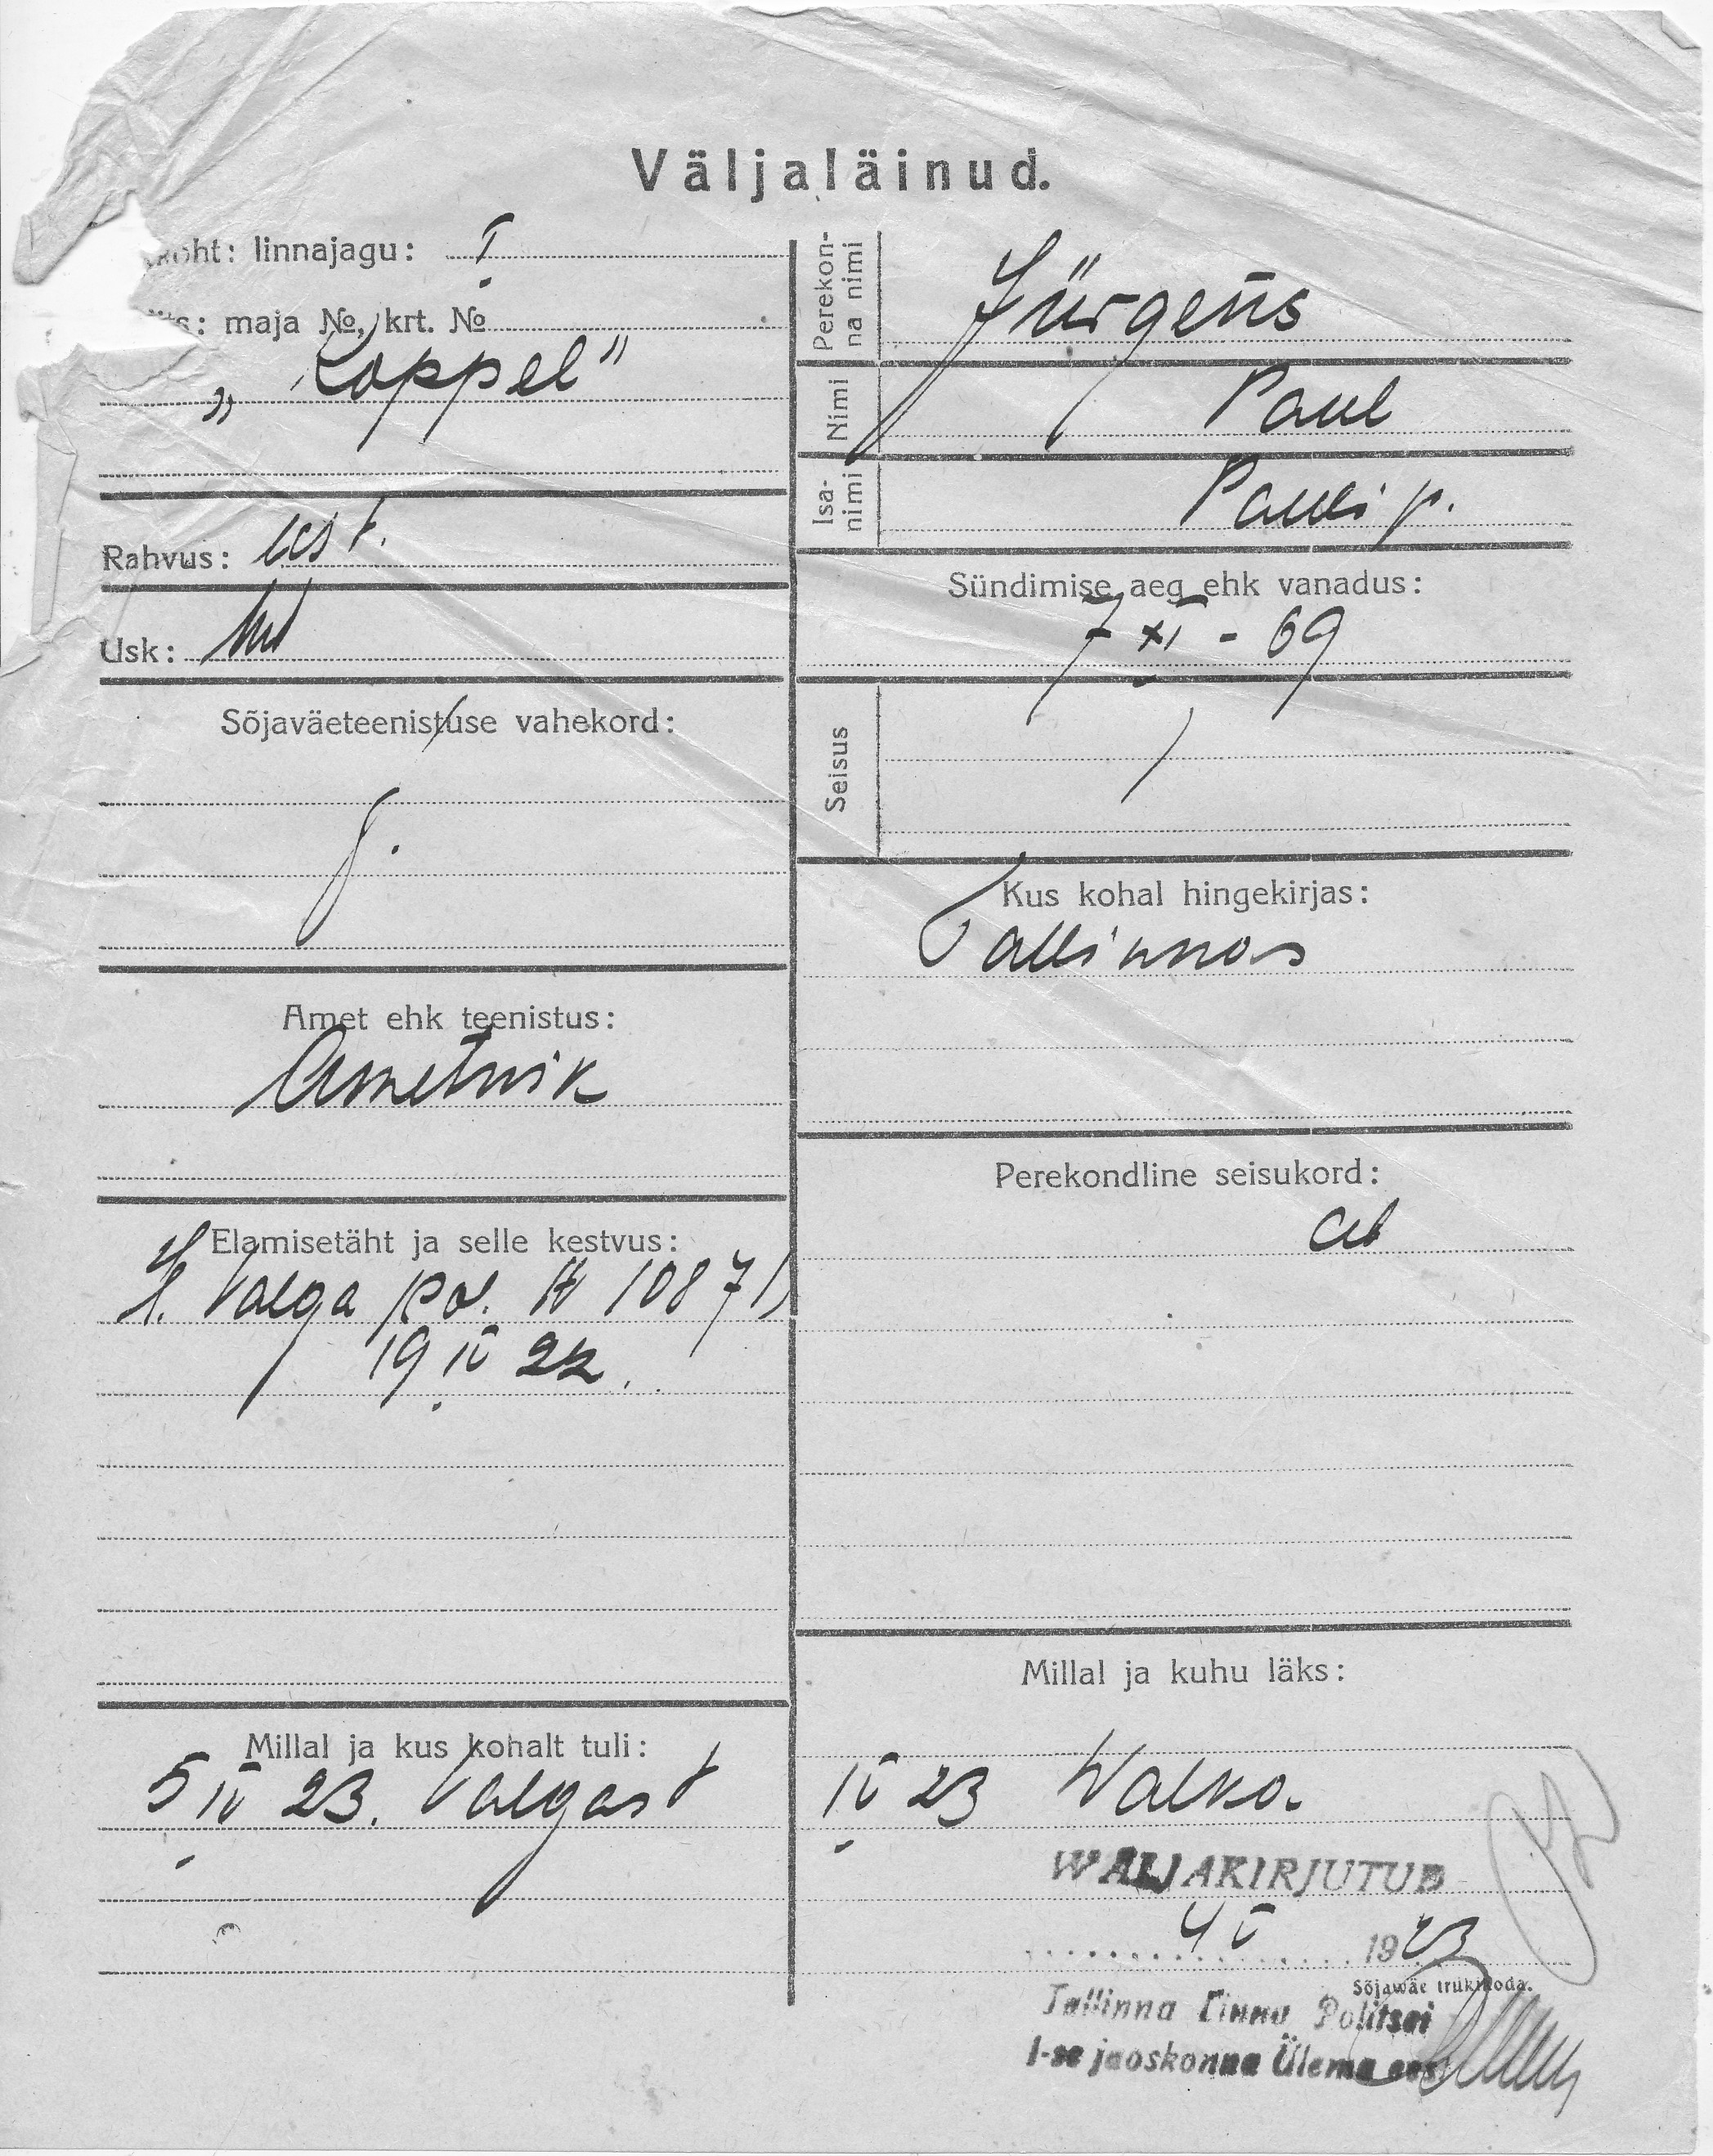 Väljaläinud.
koht: linnajagu: I
maja №, krt. №
„Koppel"
Rahvus: eest.
Usk:
Sõjaväeteenistuse vahekord:
Amet ehk teenistus:
Ametnik
Elamisetäht ja selle kestvus:
Valga pol. № 10871
19 IV 22.
Millal ja kus kohalt tuli:
5 IV 23. Valgast
Perekonna nimi
Jürgens
Nimi
Paul
Isanimi
Pauli p.
Sündimise aeg ehk vanadus:
7 XI - 69
Seisus
Kus kohal hingekirjas:
Tallinnas
Perekondline seisukord:
ab
Millal ja kuhu läks:
IV 23 Walka.
WÄLJAKIRJUTUD
4 V 1923
Sõjawäe trükikoda.
Tallinna Linna Politsei
I-se jaoskonna Ülema eest